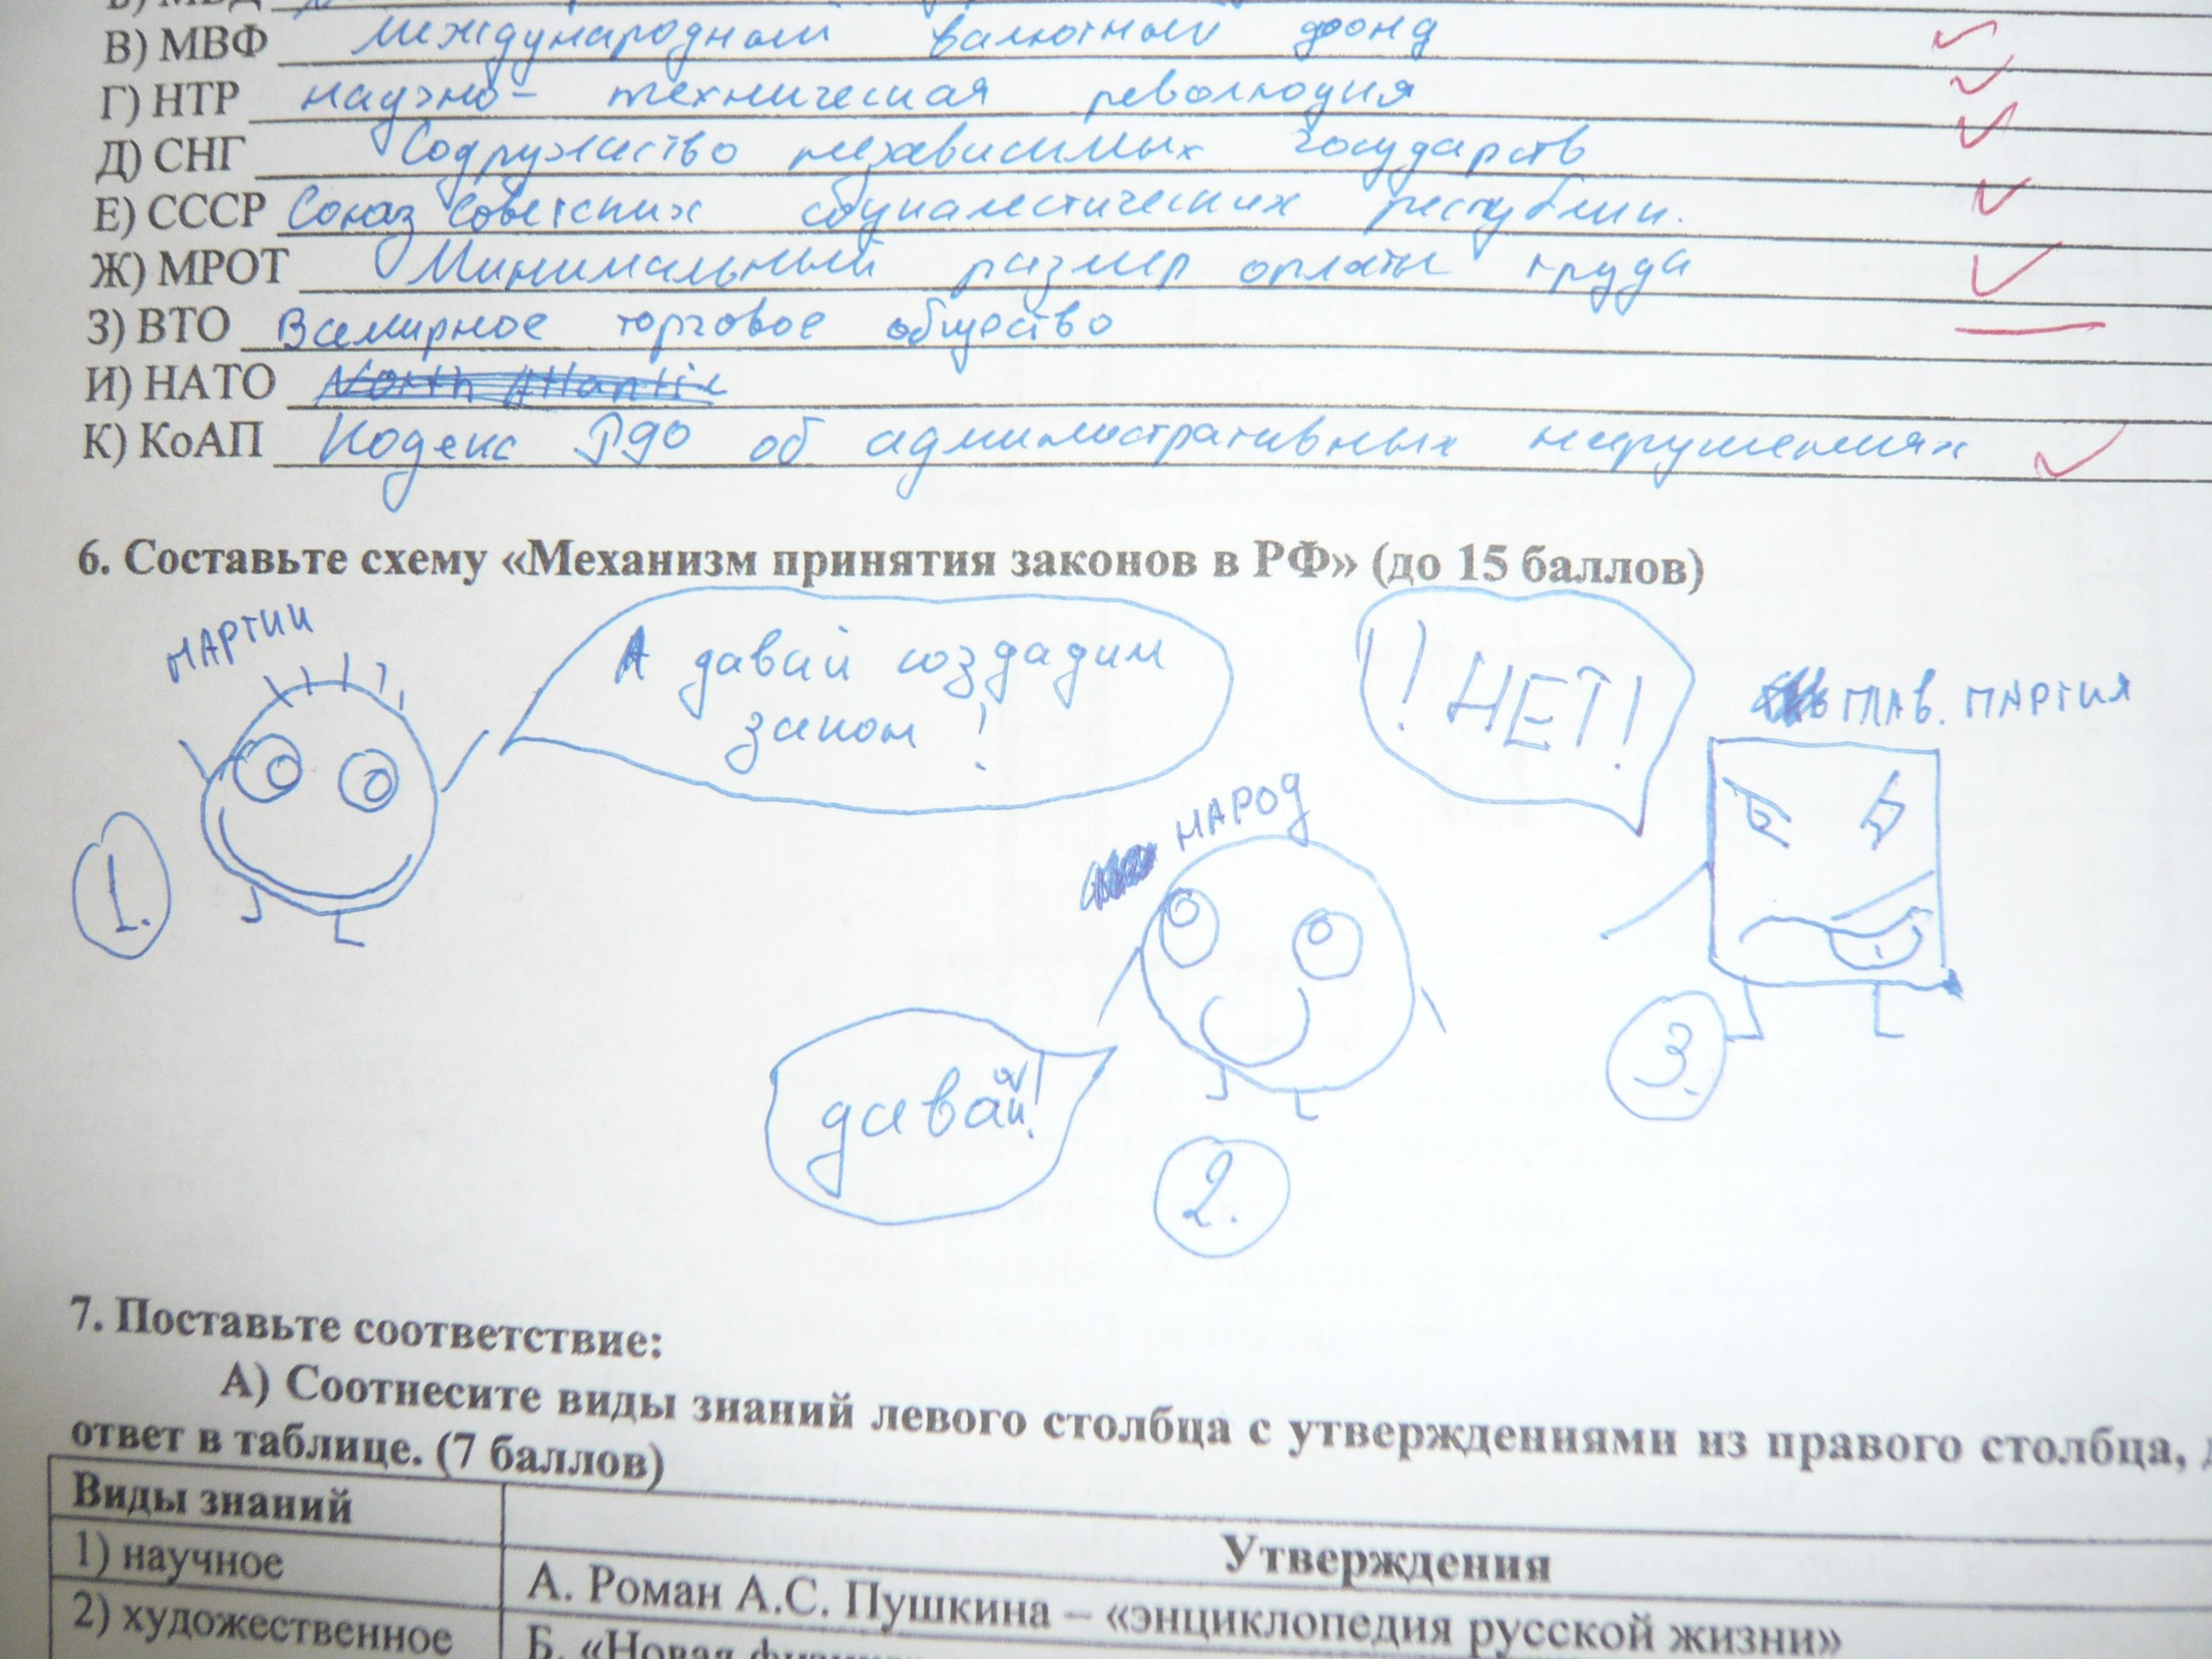 В) МВФ международный валютный фонд
Г) НТР научно- техническая революция
Д) СНГ Содружество независимых государств
Е) СССР Союз Советских социалистических республик.
Ж) МРОТ Минимальный размер оплаты труда
З) ВТО Всемирное торговое общество
И) НАТО North Atlantic
К) КоАП Кодекс РФ об административных нарушениях
6. Составьте схему «Механизм принятия законов в РФ» (до 15 баллов)
ПАРТИИ
А давай создадим
закон!
! НЕТ!
ГЛАВ. ПАРТИЯ
1.
НАРОД
давай!
3.
2.
7. Поставьте соответствие:
А) Соотнесите виды знаний левого столбца с утверждениями из правого столбца,
ответ в таблице. (7 баллов)
Виды знаний
Утверждения
1) научное
А. Роман А.С. Пушкина – «энциклопедия русской жизни»
2) художественное
Б. «Новая